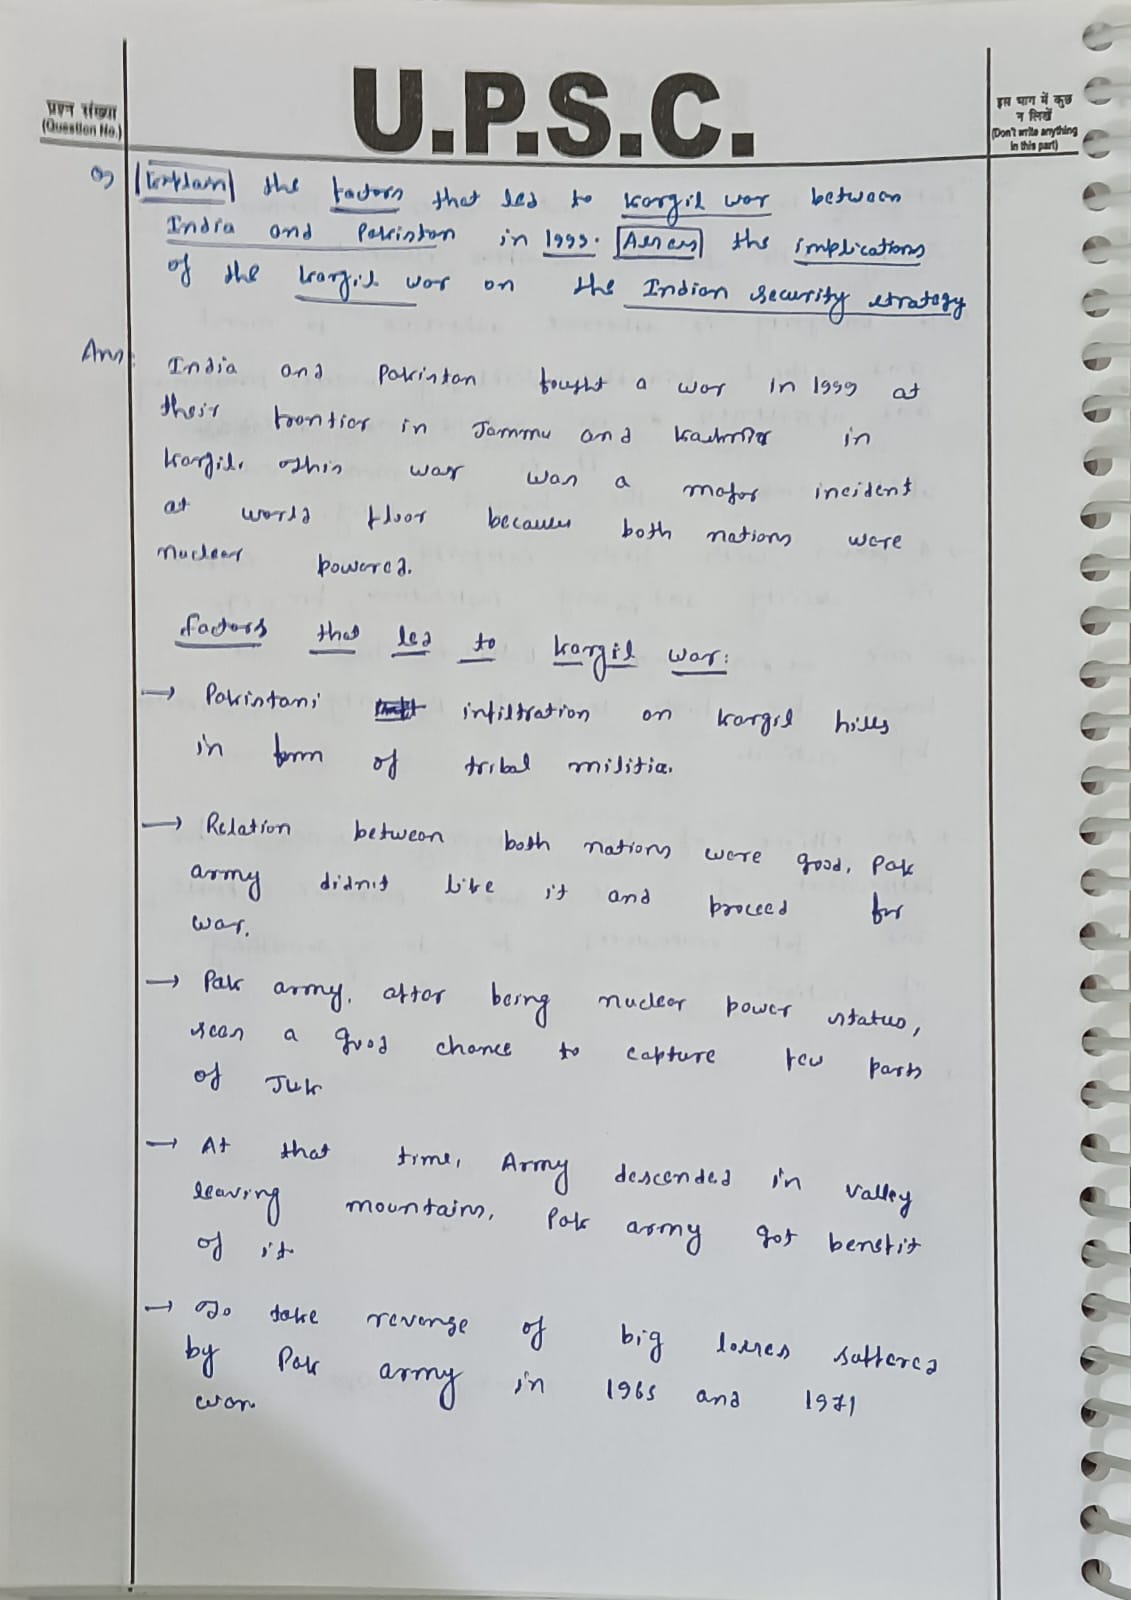 U.P.S.C.
प्रश्न संख्या
(Question No.)
इस भाग में कुछ
न लिखें
(Don't write anything
in this part)
Q) Explain the factors that led to Kargil war between
India and Pakistan in 1999. Assess the implications
of the Kargil war on the Indian security strategy
Ans: India and Pakistan fought a war in 1999 at
their frontier in Jammu and Kashmir in
Kargil. This war was a major incident
at world floor because both nations were
nuclear powered.
Factors that led to Kargil war:
→ Pakistani infiltration on Kargil hills
in form of tribal militia.
→ Relation between both nations were good, Pak
army didn't like it and proceed for
war.
→ Pak army, after being nuclear power status,
seen a good chance to capture few parts
of J&K
→ At that time, Army descended in valley
leaving mountains, Pak army got benefit
of it
→ To take revenge of big losses suffered
by Pak army in 1965 and 1971
war.